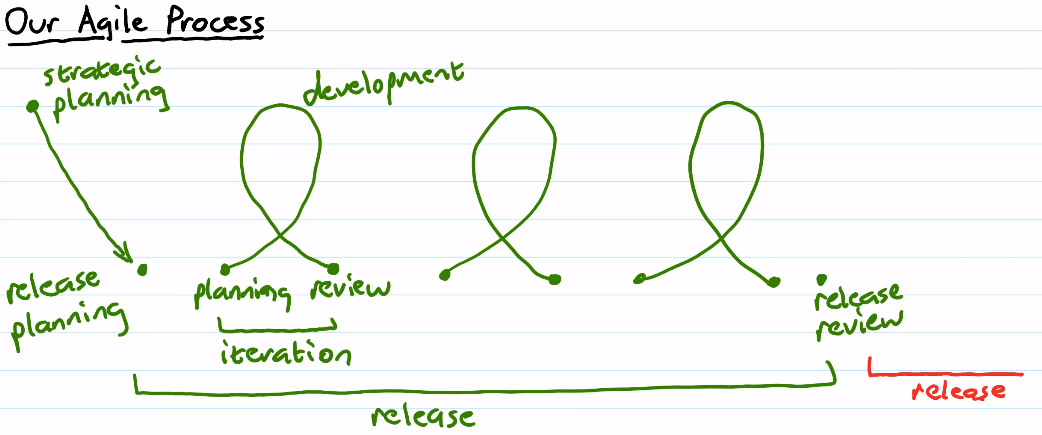 Our Agile Process
strategic
planning
development
release
planning
planning
review
iteration
release
review
release
release